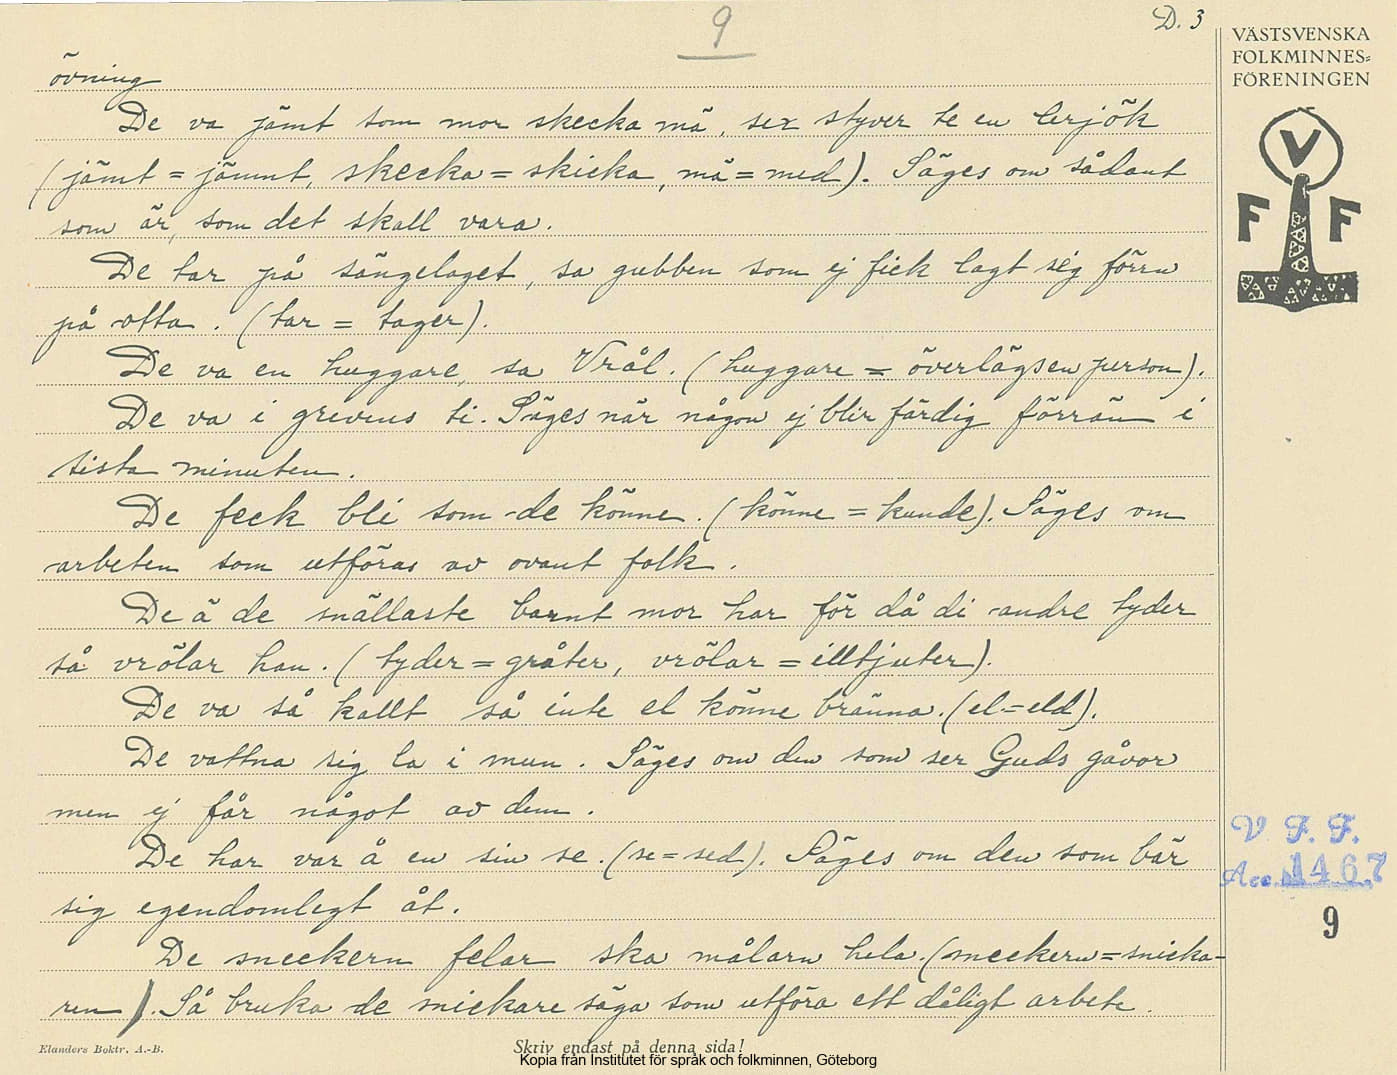 9
D. 3
VÄSTSVENSKA
FOLKMINNES=
FÖRENINGEN
V
F F
övning
De va jämt som mor skecka mä, sex styver te en lerjök
(jämt = jämnt, skecka = skicka, mä = med). Säges om sådant
som är, som det skall vara.
De tar på sängelaget, sa gubben som ej fick lagt sig förrn
på otta. (tar = tager).
De va en huggare, sa Vrål. (huggare = överlägsen person).
De va i grevens ti. Säges när någon ej blir färdig förrän i
sista minuten.
De feck bli som de könne. (könne = kunde). Säges om
arbeten som utföras av ovant folk.
De ä de snällaste barnt mor har för då di andre tyder
så vrölar han. (tyder = gråter, vrölar = illtjuter).
De va så kallt så inte el könne bränna. (el = eld).
De vattna sig la i mun. Säges om den som ser Guds gåvor
men ej får något av dem.
De har var å en sin se. (se = sed). Säges om den som bär
sig egendomlegt åt.
De sneckern felar ska målarn hela. (sneckern = snicka-
ren). Så bruka de snickare säga som utföra ett dåligt arbete.
V. F. F.
Acc. 1467
9
Elanders Boktr. A.-B.
Skriv endast på denna sida!
Kopia från Institutet för språk och folkminnen, Göteborg